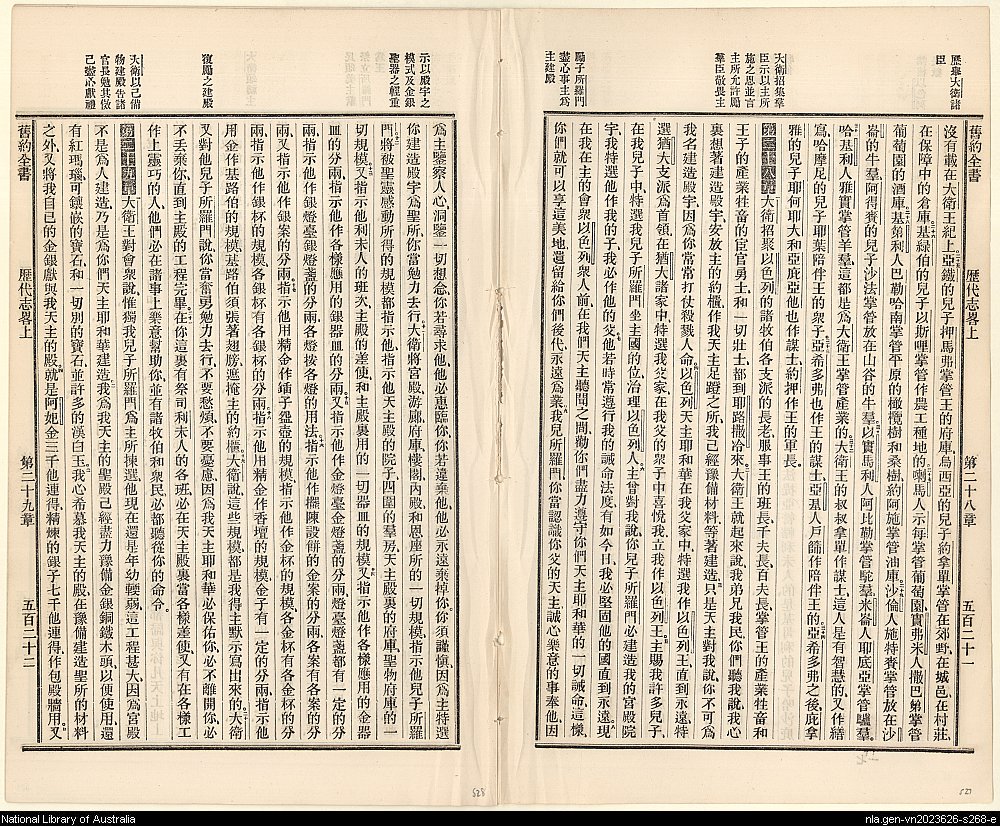 歷舉大衛諸
臣
大衛招集羣
臣示以主所
施之恩並言
主所允許勗
羣臣敬畏主
勗子所羅門
盡心事主爲
主建殿
舊約全書 歷代志畧上 第二十八章 五百二十一
沒有載在大衛王紀上亞鐵的兒子押馬弗掌管王的府庫烏西亞的兒子約拿單掌管在郊野在城邑在村莊
在保障中的倉庫基綠伯的兒子以斯哩掌管作農工種地的喇馬人示每掌管葡萄園實弗米人撒巴弟掌管
葡萄園的酒庫基第利人巴勒哈南掌管平原的橄欖樹和桑樹約阿施掌管油庫沙倫人施特賚掌管放在沙
崙的牛羣阿得賚的兒子沙法掌管放在山谷的牛羣以實馬利人阿比勒掌管駝羣米崙人耶底亞掌管驢羣
哈基利人雅實掌管羊羣這都是爲大衛王掌管產業的大衛王的叔叔拿單作謀士這人是有智慧的又作繕
寫哈摩尼的兒子耶葉陪伴王的衆子亞希多弗也作王的謀士亞基人戶篩作陪伴王的亞希多弗之後庇拿
雅的兒子耶何耶大和亞庇亞他也作謀士約押作王的軍長
第二十八章 大衛招聚以色列的諸牧伯各支派的長老服事王的班長千夫長百夫長掌管王的產業牲畜和
王子的產業牲畜的宦官勇士和一切壯士都到耶路撒冷來大衛王就起來說我弟兄我民你們聽我說我心
裏想著建造殿宇安放主的約櫃作我天主足蹬之所我已經豫備材料等著建造只是天主對我說你不可爲
我名建造殿宇因爲你常常打仗殺戮人命以色列天主耶和華在我父家中特選我作以色列王直到永遠特
選猶大支派爲首領在猶大諸家中特選我父家在我父的衆子中喜悅我立我作以色列王主賜我許多兒子
在我兒子中特選我兒子所羅門坐主國的位治理以色列人主曾對我說你兒子所羅門必建造我的宮殿院
宇我特選他作我的子我必作他的父他若時常遵行我的誡命法度有如今日我必堅固他的國直到永遠現
在我在主的會衆以色列衆人前在我們天主聽聞之間勸你們盡力遵守你們天主耶和華的一切誡命這樣
你們就可以享這美地遺留給你們後代永遠爲業我兒所羅門你當認識你父的天主誠心樂意的事奉他因
示以殿宇之
模式及金銀
聖器之輕重
復勗之建殿
大衛以己備
物建殿吿諸
官長勉其傚
己盡心獻禮
爲主鑒察人心洞鑒一切想念你若尋求他他必惠臨你你若違棄他他必永遠棄掉你你須謹愼因爲主特選
你建造殿宇爲聖所你當勉力去行大衛將宮殿游廊府庫樓閣內殿和恩座所的一切規模指示他兒子所羅
門將被聖靈感動所得的規模都指示他指示他天主殿的院子四圍的羣房天主殿裏的府庫聖物府庫的一
切規模又指示他利未人的班次主殿的差使和主殿裏用的一切器皿的規模又指示他作各樣應用的金器
皿的分兩指示他作各樣應用的銀器皿的分兩又指示他作金燈臺金燈盞的分兩燈臺燈盞都有一定的分
兩又指示他作銀燈臺銀燈盞的分兩各燈按各燈的用法指示他作擺陳設餅的金案的分兩各案有各案的分
兩又指示他作銀案的分兩指示他用精金作鍤子盌壺的規模指示他作金杯的規模各金杯有各金杯的分
兩指示他作銀杯的規模各銀杯有各銀杯的分兩指示他用精金作香壇的規模金子有一定的分兩指示他
用金作基路伯的規模基路伯須張著翅膀遮掩主的約櫃大衛說這些規模都是我得主默示寫出來的大衛
又對他兒子所羅門說你當奮勇勉力去行不要愁煩不要憂慮因爲我天主耶和華必保佑你必不離開你必
不丢棄你直到主殿的工程完畢在你這裏有祭司利未人的各班必在天主殿裏當各樣差使又有在各樣工
作上靈巧的人他們必在諸事上樂意幫助你並有諸牧伯和衆民必都聽從你的命令
第二十九章 大衛王對會衆說惟獨我兒子所羅門爲主所揀選他現在還是年幼輭弱這工程甚大因爲宮殿
不是爲人建造乃是爲你們天主耶和華建造我爲我天主的聖殿已經盡力豫備金銀銅鐵木頭以便使用還
有紅瑪瑙可鑲嵌的寶石和一切別的寶石並許多的漢白玉我心希慕我天主的殿在豫備建造聖所的材料
之外又將我自己的金銀獻與我天主的殿就是阿妃金三千他連得精煉的銀子七千他連得作包殿牆用又
舊約全書 歷代志畧上 第二十九章 五百二十二
528
527
National Library of Australia
nla.gen-vn2023626-s268-e